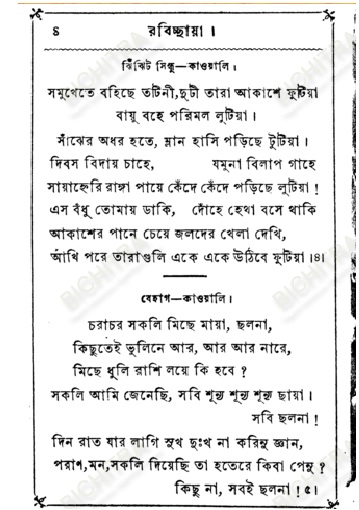 ৪ রবিচ্ছায়া।
ঝিঁঝিট সিন্ধু—কাওয়ালি।
সমুখেতে বহিছে তটিনী,দুটী তারা আকাশে ফুটিয়া
বায়ু বহে পরিমল লুটিয়া।
সাঁঝের অধর হতে, ম্লান হাসি পড়িছে টুটিয়া।
দিবস বিদায় চাহে, যমুনা বিলাপ গাহে
সায়াহ্নেরি রাঙ্গা পায়ে কেঁদে কেঁদে পড়িছে লুটিয়া!
এস বঁধু তোমায় ডাকি, দোঁহে হেথা বসে থাকি
আকাশের পানে চেয়ে জলদের খেলা দেখি,
আঁখি পরে তারাগুলি একে একে উঠিবে ফুটিয়া।৪।
বেহাগ—কাওয়ালি।
চরাচর সকলি মিছে মায়া, ছলনা,
কিছুতেই ভুলিনে আর, আর আর নারে,
মিছে ধুলি রাশি লয়ে কি হবে?
সকলি আমি জেনেছি, সবি শূন্য শূন্য শূন্য ছায়া।
সবি ছলনা!
দিন রাত যার লাগি সুখ দুঃখ না করিনু জ্ঞান,
পরাণ,মন,সকলি দিয়েছি তা হতেরে কিবা পেনু?
কিছু না, সবই ছলনা!৫।
BICHITRA